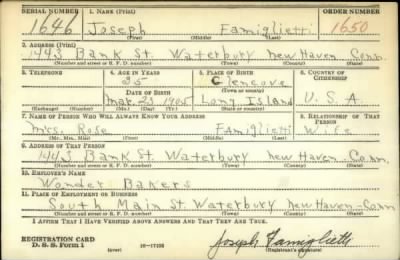 SERIAL NUMBER 1. NAME (Print) ORDER NUMBER
1646 Joseph Famiglietti 1650
(First) (Middle) (Last)
2. ADDRESS (Print)
1443 Bank St. Waterbury New Haven Conn.
(Number and street or R. F. D. number) (Town) (County) (State)
3. TELEPHONE 4. AGE IN YEARS 5. PLACE OF BIRTH 6. COUNTRY OF CITIZENSHIP
35 Glencove
DATE OF BIRTH (Town or county)
Mar. 23 1905 Long Island U. S. A.
(Exchange) (Number) (Mo.) (Day) (Yr.) (State or country)
7. NAME OF PERSON WHO WILL ALWAYS KNOW YOUR ADDRESS 8. RELATIONSHIP OF THAT PERSON
Mrs. Rose Famiglietti Wife
(Mr., Mrs., Miss) (First) (Middle) (Last)
9. ADDRESS OF THAT PERSON
1443 Bank St. Waterbury New Haven-Conn.
(Number and street or R. F. D. number) (Town) (County) (State)
10. EMPLOYER'S NAME
Wonder Bakers
11. PLACE OF EMPLOYMENT OR BUSINESS
South Main St. Waterbury New Haven-Conn
(Number and street or R. F. D. number) (Town) (County) (State)
I AFFIRM THAT I HAVE VERIFIED ABOVE ANSWERS AND THAT THEY ARE TRUE.
REGISTRATION CARD
D. S. S. Form 1 (over) 16—17105 Joseph Famiglietti
(Registrant's signature)